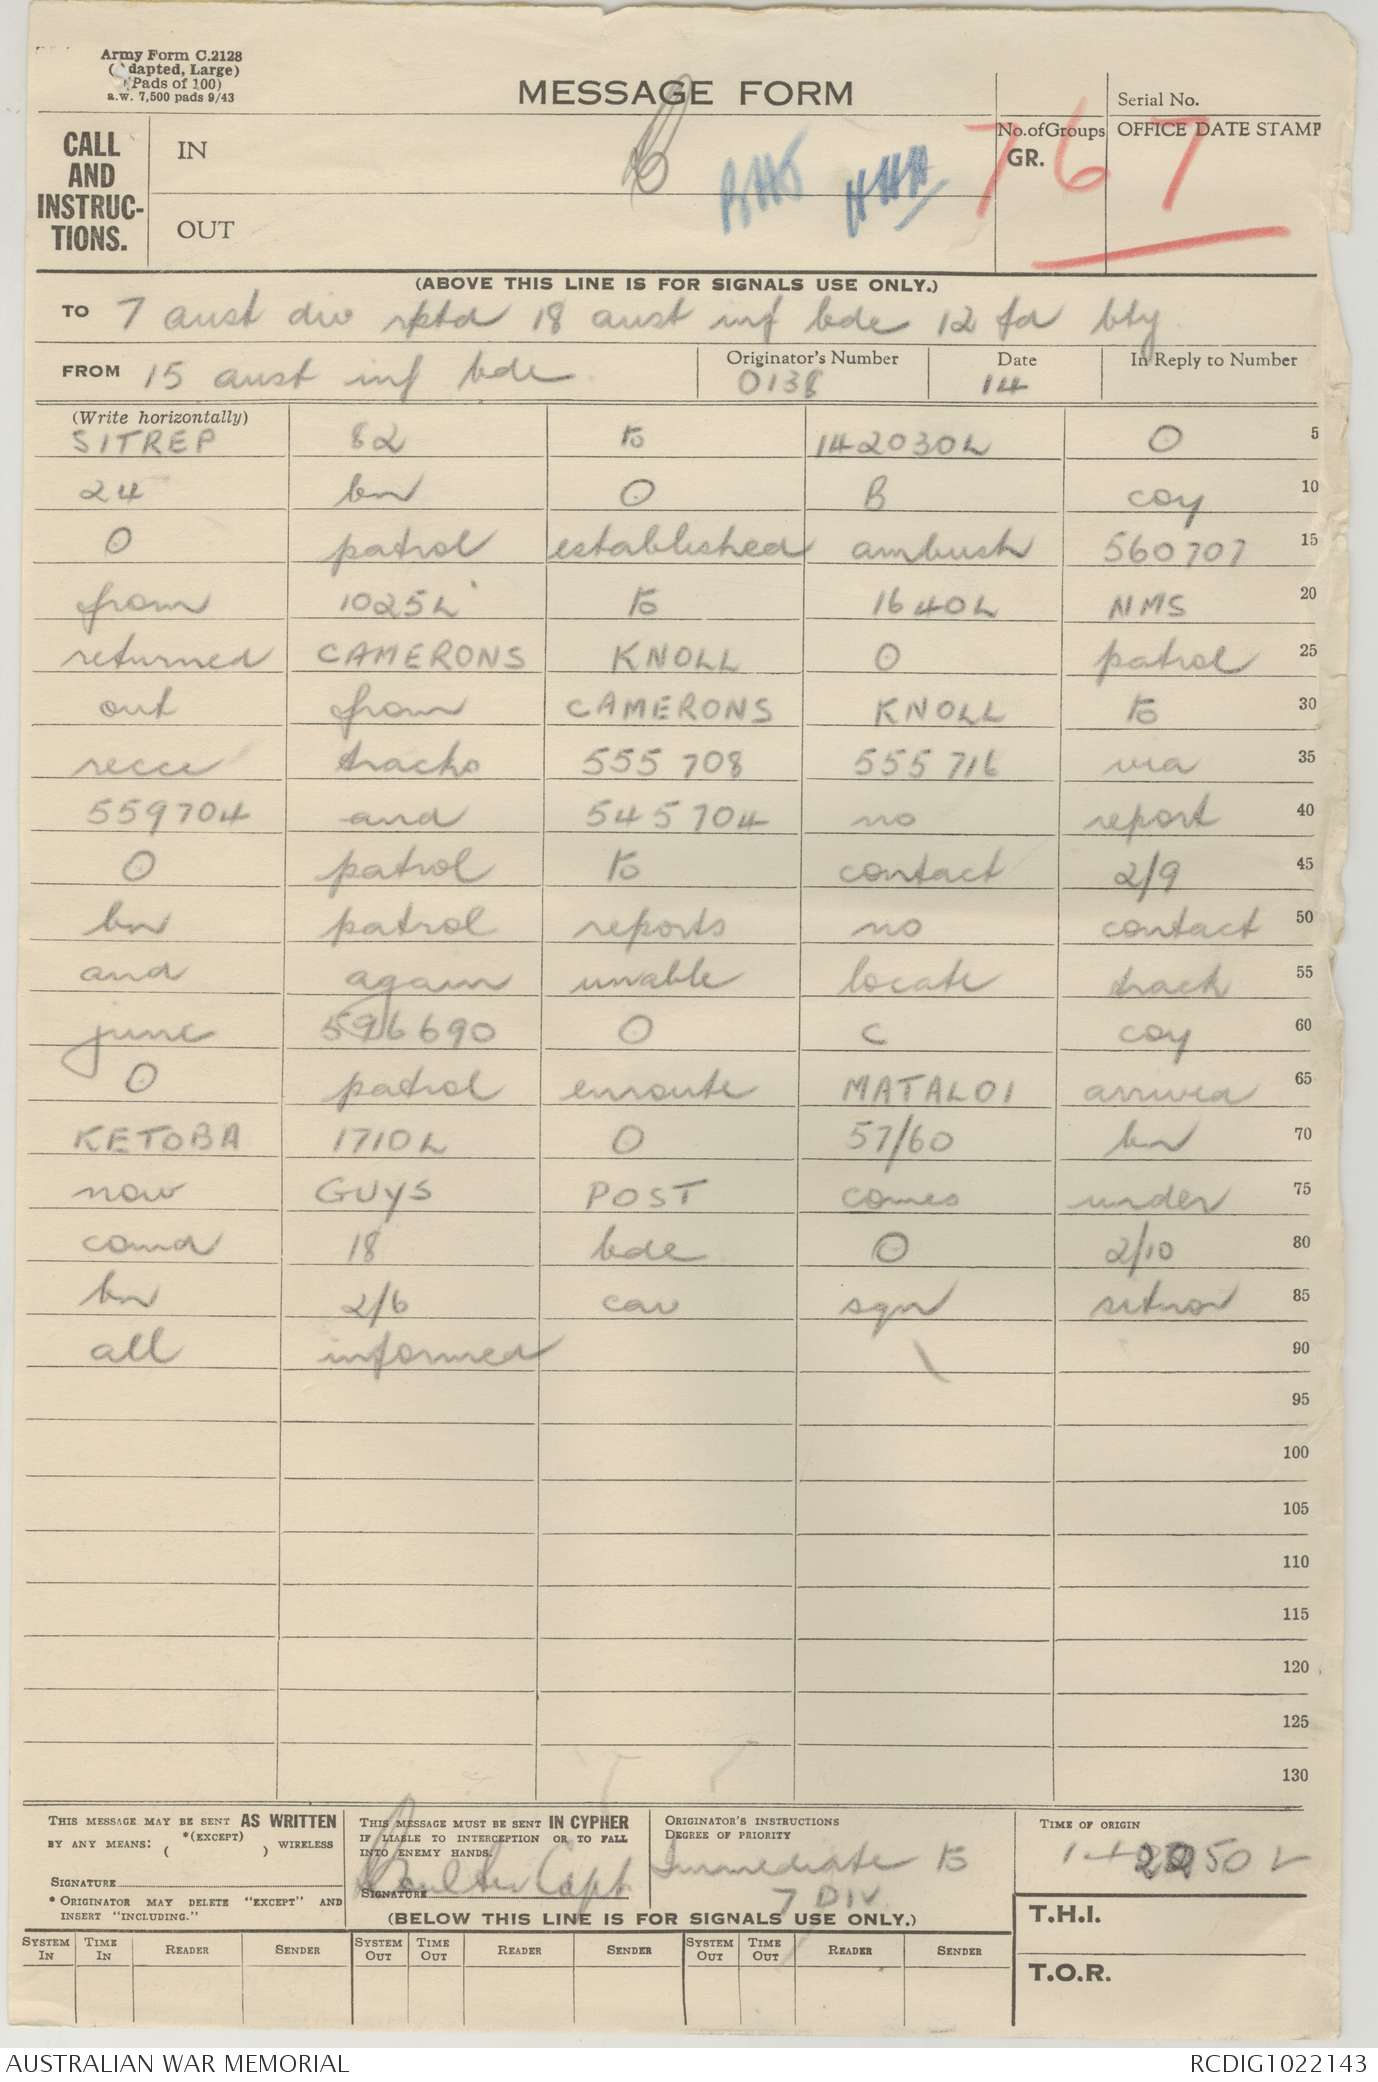 Army Form C.2128
(Adapted, Large)
(Pads of 100)
a.w. 7,500 pads 9/43
MESSAGE FORM
Serial No.
CALL AND INSTRUC-TIONS.
IN
OUT
No. of Groups
GR.
OFFICE DATE STAMP
767
(ABOVE THIS LINE IS FOR SIGNALS USE ONLY.)
TO 7 aust div rptd 18 aust inf bde 12 fd bty
FROM 15 aust inf bde
Originator's Number 0138
Date 14
In Reply to Number
(Write horizontally)
SITREP 82 to 142030L O 5
24 bn O B coy 10
O patrol established ambush 560707 15
from 1025L to 1640L NMS 20
returned CAMERONS KNOLL O patrol 25
out from CAMERONS KNOLL to 30
recce tracks 555708 555716 via 35
559704 and 545704 no report 40
O patrol to contact 2/9 45
bn patrol reports no contact 50
and again unable locate track 55
junc 596690 O C coy 60
O patrol enroute MATALOI arrived 65
KETOBA 1710L O 57/60 bn 70
now GUYS POST comes under 75
comd 18 bde O 2/10 80
bn 2/6 cav sqn 85
all informed 90
95
100
105
110
115
120
125
130
THIS MESSAGE MAY BE SENT AS WRITTEN
BY ANY MEANS: *(EXCEPT) ( ) WIRELESS
SIGNATURE
* ORIGINATOR MAY DELETE "EXCEPT" AND
INSERT "INCLUDING."
THIS MESSAGE MUST BE SENT IN CYPHER
IF LIABLE TO INTERCEPTION OR TO FALL
INTO ENEMY HANDS.
SIGNATURE Capt
ORIGINATOR'S INSTRUCTIONS
DEGREE OF PRIORITY
Immediate to
7 DIV
TIME OF ORIGIN
(BELOW THIS LINE IS FOR SIGNALS USE ONLY.)
T.H.I.
T.O.R.
SYSTEM IN TIME IN READER SENDER SYSTEM OUT TIME OUT READER SENDER SYSTEM OUT TIME OUT READER SENDER
AUSTRALIAN WAR MEMORIAL
RCDIG1022143